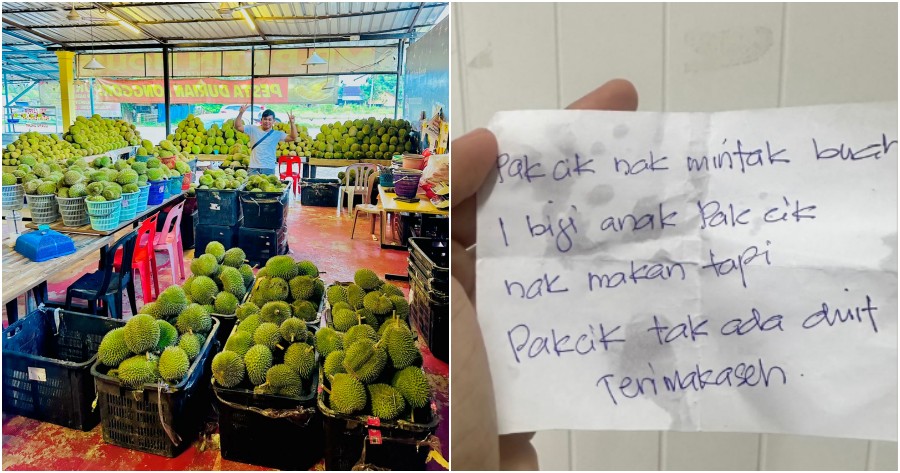 PESTA DURIAN LONGGOK
Pak cik nak mintak buah
1 biji anak Pak cik
nak makan tapi
Pakcik tak ada duit
Terimakaseh.